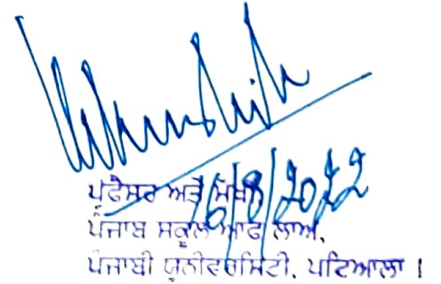 16/8/2022
ਪ੍ਰੋਫੈਸਰ ਅਤੇ ਮੁਖੀ
ਪੰਜਾਬ ਸਕੂਲ ਆਫ ਲਾਅ,
ਪੰਜਾਬੀ ਯੂਨੀਵਰਸਿਟੀ, ਪਟਿਆਲਾ ।